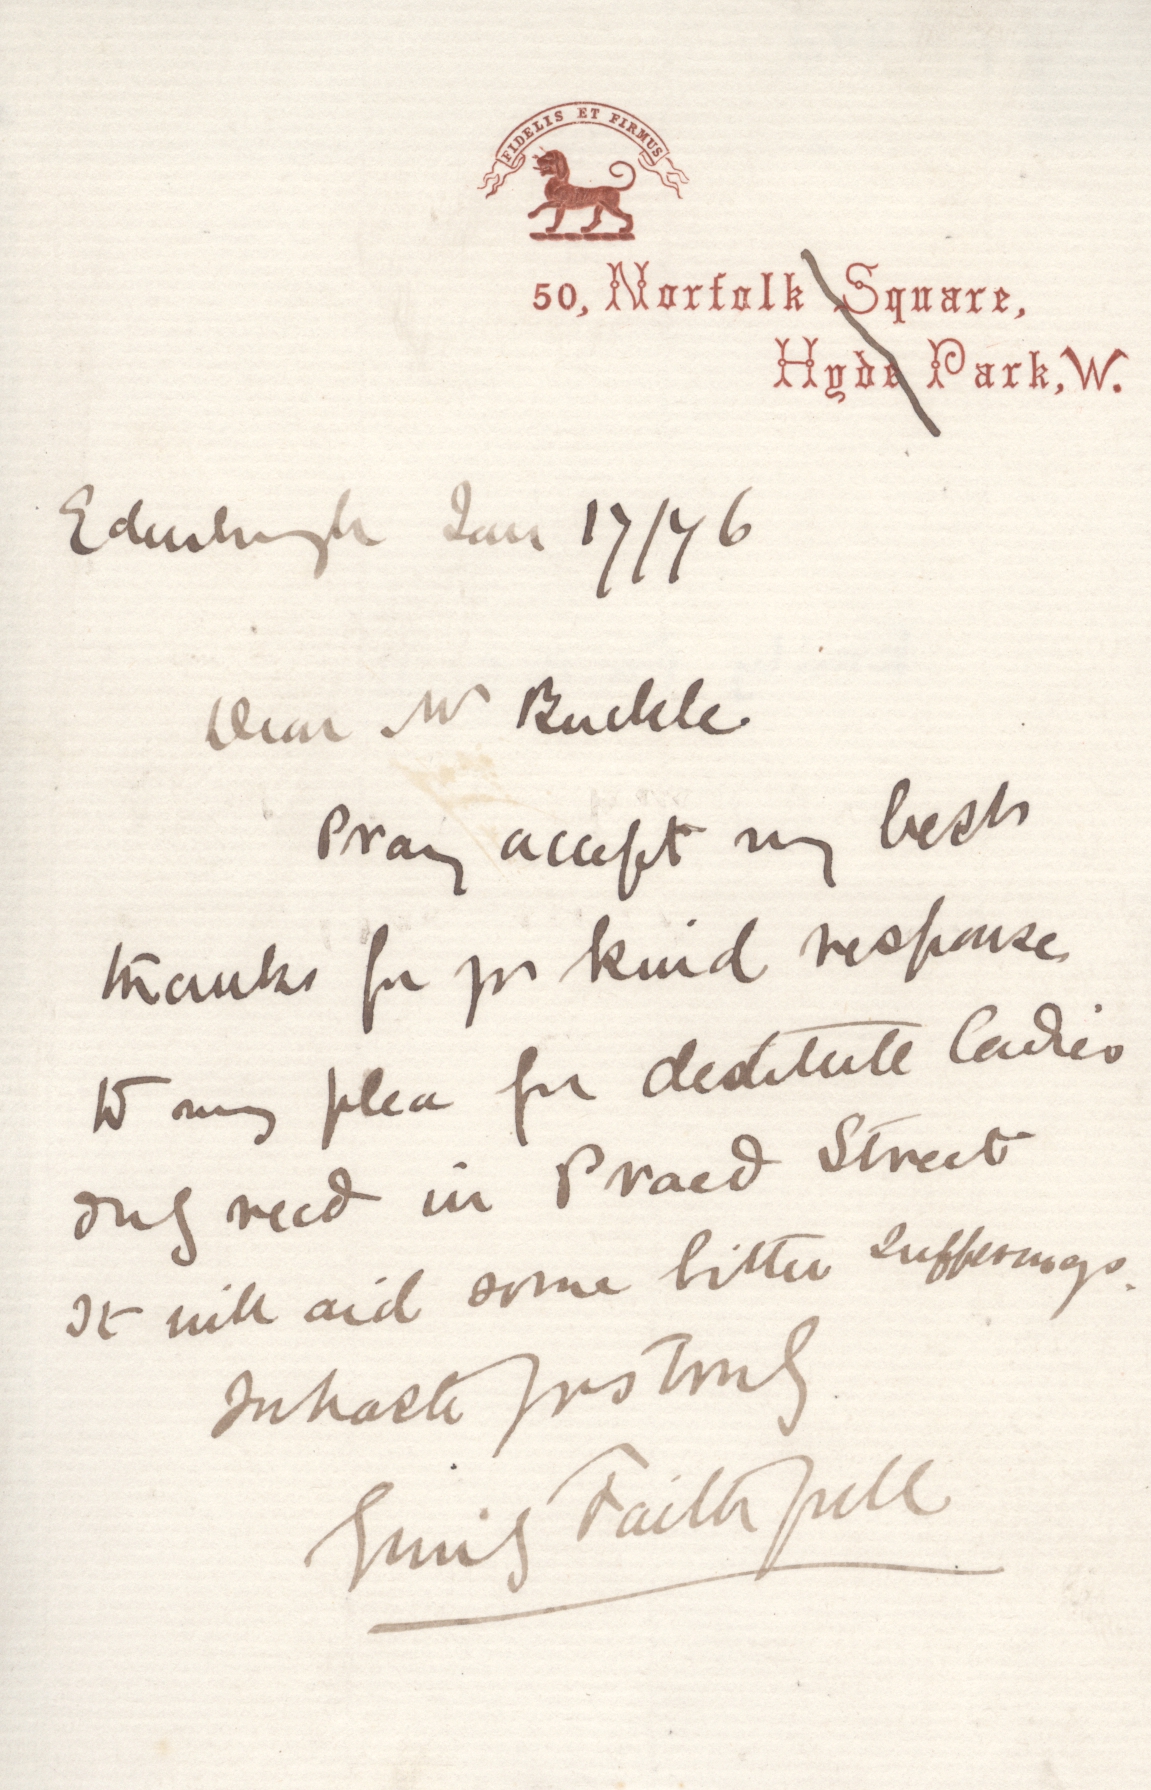 FIDELIS ET FIRMUS
50, Norfolk Square,
Hyde Park, W.
Edinburgh Jan 17/76
Dear Mr Buckle
Pray accept my best
thanks for yr kind response
to my plea for destitute ladies
only recd in Praed Street
It will aid some bitter sufferings.
In haste yrs truly
Emily Faithfull